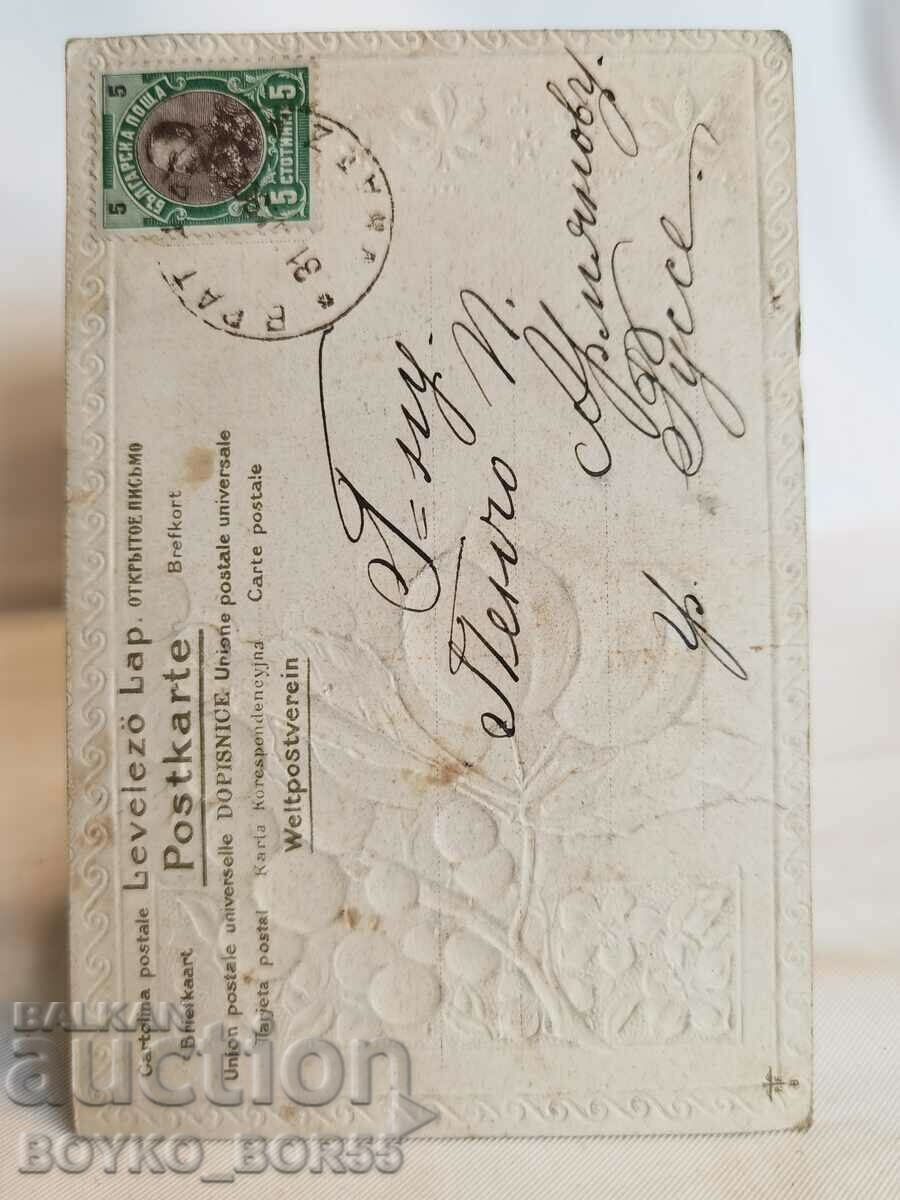 Cartolina postale Levelezö Lap. ОТКРЫТОЕ ПИСЬМО
Briefkaart Postkarte Brefkort
Union postale universelle DOPISNICE Unione postale universale
Tarjeta postal Karta Korespondencyjna Carte postale
Weltpostverein
5 5
БЪЛГАРСКА ПОЩА
5 СТОТИНКИ 5
31
Г=ну.
Пенчо П.
гр. Русе.
BALKAN
auction
BOYKO_BOR55